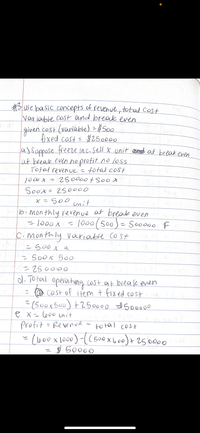 #3 use basic concepts of revenue, total cost
variable cost and break even
given cost (variable) = $500
fixed cost = $250000
a) Suppose freeze inc. sell x unit at break even
at break even no profit no loss
Total revenue = total cost
1000x = 250000 + 500x
500x = 250000
x = 500 unit
b. monthly revenue at break even
= 1000x = 1000(500) = 500000
C. Monthly variable cost
= 500x
= 500 x 500
= 250000
d. Total operating cost at break even
= cost of item + fixed cost
= (500x500) + 250000 = $500000
e x = 600 unit
Profit = Revenue - total cost
= (600x1000) - ((500x600) + 250000
= $ 50000